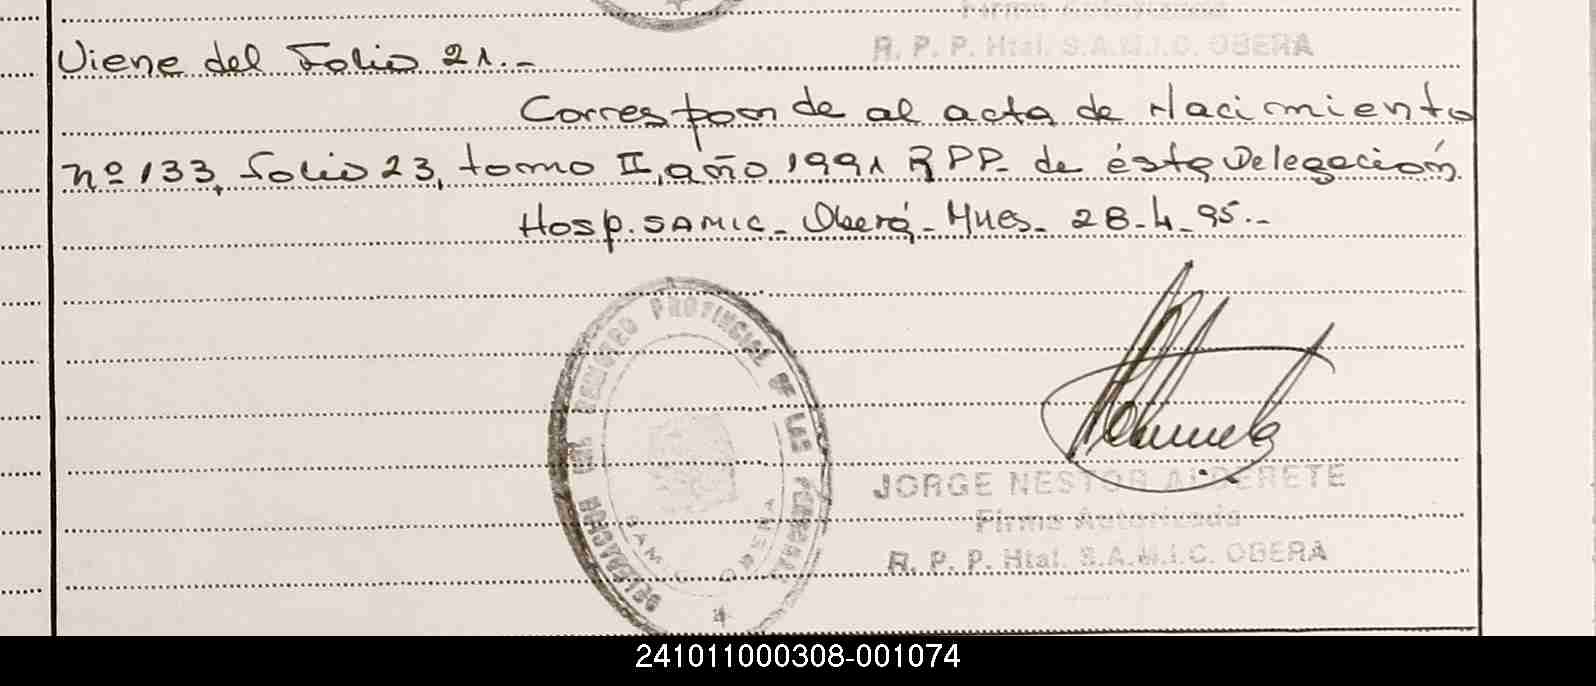 Firma Autorizada
R. P. P. Htal. S.A.M.I.C. OBERA
Viene del Folio 21.-
Corresponde al acta de Nacimiento
nº 133, Folio 23, tomo II, año 1991 RPP- de ésta Delegación
Hosp. SAMIC- Oberá- Mnes- 28-4-95.-
PROVINCIAL DE LAS PERSONAS
JORGE NESTOR ALDERETE
Firma Autorizada
R. P. P. Htal. S.A.M.I.C. OBERA
241011000308-001074